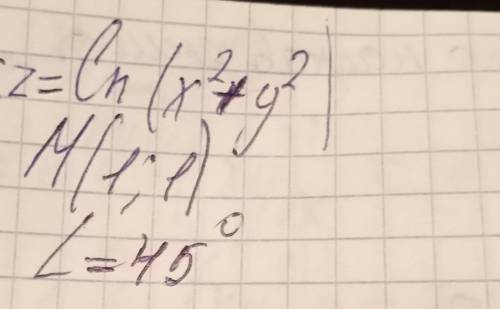 z = ln(x² + y²)
M(1; 1)
L = 45°